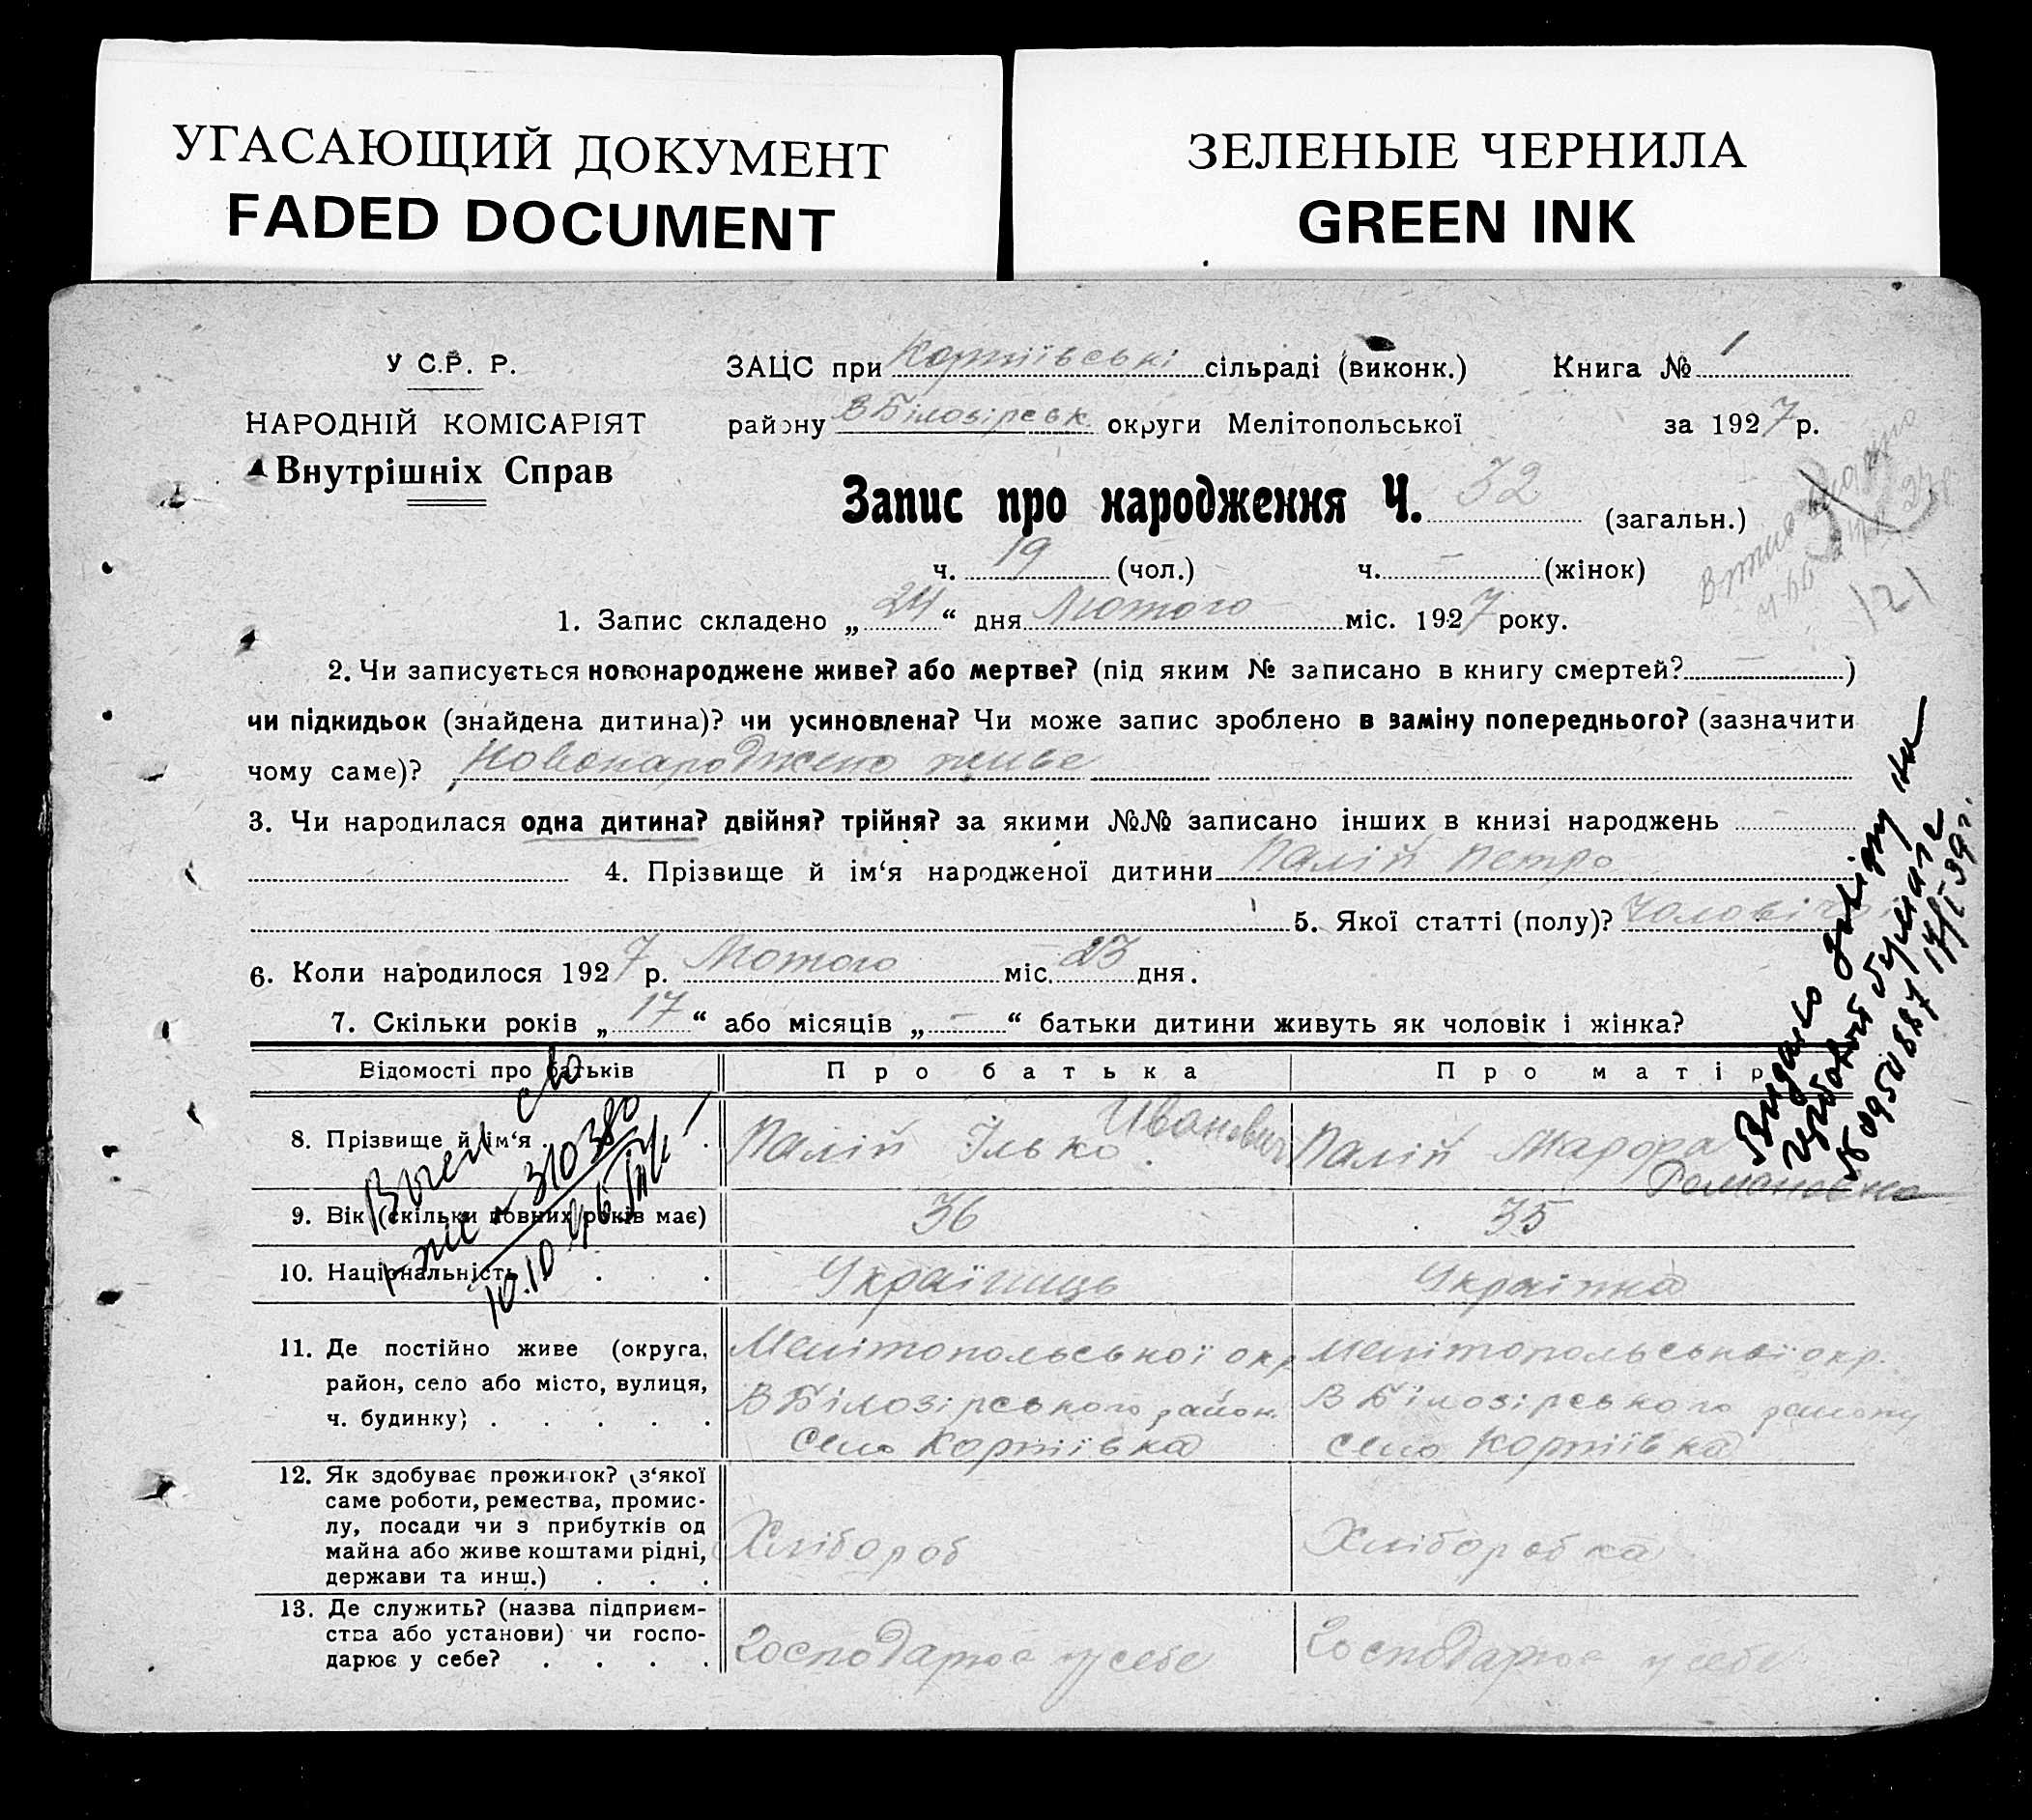 УГАСАЮЩИЙ ДОКУМЕНТ
FADED DOCUMENT
ЗЕЛЕНЫЕ ЧЕРНИЛА
GREEN INK
У С.Р. Р.
НАРОДНІЙ КОМІСАРІЯТ
Внутрішніх Справ
ЗАЦС при сільраді (виконк.) Книга № 1
району В Білозірськ. округи Мелітопольської за 1927 р.
Запис про народження Ч. 32 (загальн.)
ч. 19 (чол.) ч. – (жінок)
121
1. Запис складено „24“ дня Лютого міс. 1927 року.
2. Чи записується новонароджене живе? або мертве? (під яким № записано в книгу смертей? – )
чи підкидьок (знайдена дитина)? чи усиновлена? Чи може запис зроблено в заміну попереднього? (зазначити
чому саме)? Новонароджено живе
3. Чи народилася одна дитина? двійня? трійня? за якими №№ записано інших в книзі народжень –
4. Прізвище й ім‘я народженої дитини Палій Петро
5. Якої статті (полу)?
6. Коли народилося 1927 р. Лютого міс. 23 дня.
7. Скільки років „17“ або місяців „–“ батьки дитини живуть як чоловік і жінка?
Відомості про батьків Про батька Про матір
8. Прізвище й ім‘я . . Палій Ілько Иванович Палій Романовна
9. Вік (скільки повних років має) 36 35
10. Національність . . Українць Українка
11. Де постійно живе (округа, район, село або місто, вулиця, ч. будинку) . . . . .
Мелітопольської окр. В Білозірського район. село Корніївка
Мелітопольської окр. В Білозірського району село Корніївка
12. Як здобуває прожиток? (з‘якої саме роботи, ремества, промис-
лу, посади чи з прибутків од
майна або живе коштами рідні,
держави та инш.) . . .
Хлібороб Хліборобка
13. Де служить? (назва підприєм-
ства або установи) чи госпо-
дарює у себе? . . . .
Господарює у себе Господарює у себе
310380
10.10